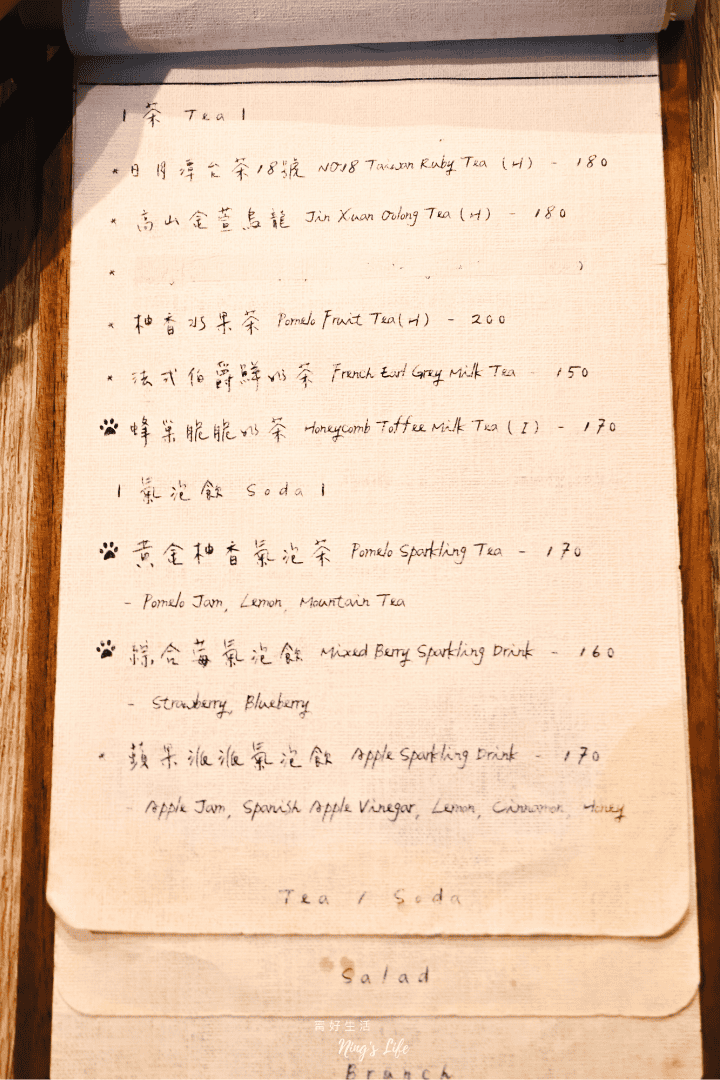 | 茶 Tea |
* 日月潭台茶18號 NO18 Taiwan Ruby Tea (H) - 180
* 高山金萱烏龍 Jin Xuan Oolong Tea (H) - 180
*
* 柚香水果茶 Pomelo Fruit Tea (H) - 200
* 法式伯爵鮮奶茶 French Earl Grey Milk Tea - 150
蜂巢脆脆奶茶 Honeycomb Toffee Milk Tea (I) - 170
| 氣泡飲 Soda |
黃金柚香氣泡茶 Pomelo Sparkling Tea - 170
- Pomelo Jam, Lemon, Mountain Tea
綜合莓氣泡飲 Mixed Berry Sparkling Drink - 160
- Strawberry, Blueberry
* 蘋果派派氣泡飲 Apple Sparkling Drink - 170
- Apple Jam, Spanish Apple Vinegar, Lemon, Cinnamon, Honey
Tea / Soda
Salad
好生活
Ning's Life
Brunch